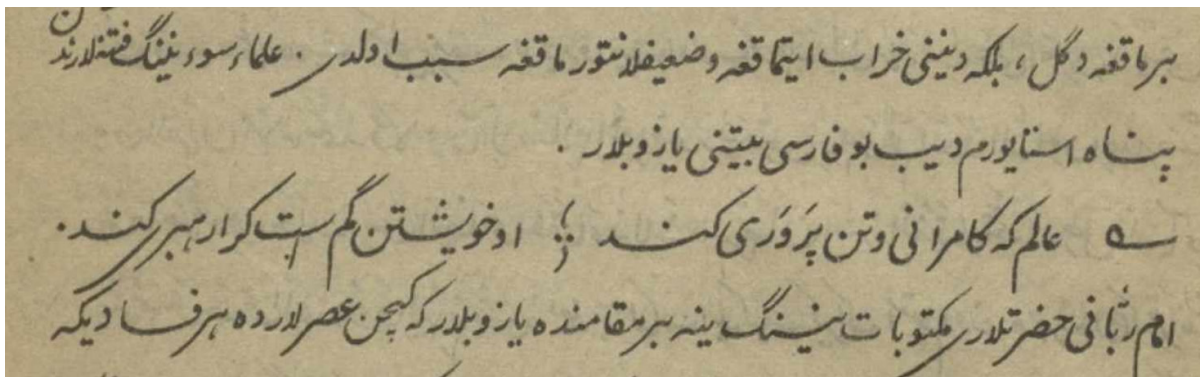 برماقغه دگل ، بلکه دیننی خراب ایتماقغه وضعیفلانتورماقغه سبب اولدی . علماء سوء نینگ فتنهلارندن
پناه استایورم دیب بو فارسی بیتنی یازوبلار .
عالم که کامرانی وتن پَروَری کند ؛ او خویشتن گم است کرا رهبری کند .
امام ربّانی حضرتلاری مکتوبات نینگ ینه بر مقامنده یازوبلار که کیچن عصرلارده هر فسادیکه